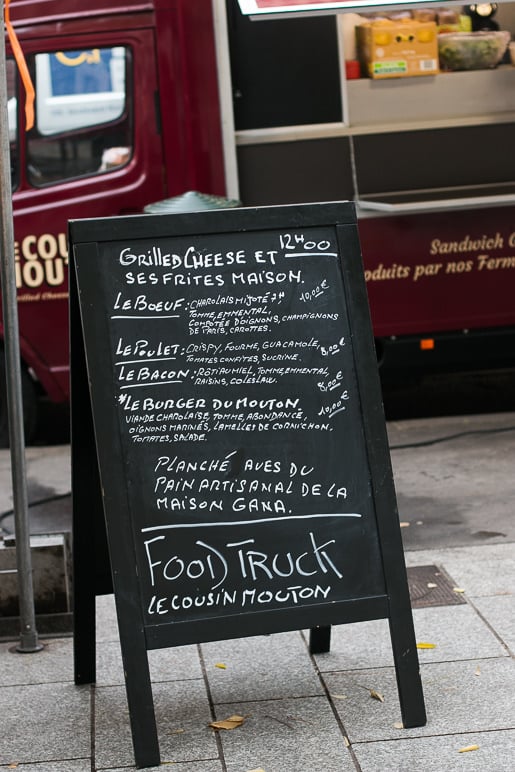 COU
MOUT
Grilled Cheese
Sandwich
Produits par nos Ferm
GRILLED CHEESE ET 12H00
SES FRITES MAISON.
LE BOEUF: CHAROLAIS MIJOTÉ 7H 10,00€
TOMME, EMMENTAL,
COMPOTÉE D'OIGNONS, CHAMPIGNONS
DE PARIS, CAROTTES.
LE POULET: CRISPY, FOURME, GUACAMOLE, 8,00€
TOMATES CONFITES, SUCRINE.
LE BACON: RÔTI AU MIEL, TOMME, EMMENTAL, 8,00€
RAISINS, COLESLAW.
*LE BURGER DU MOUTON 10,00€
VIANDE CHAROLAISE, TOMME, ABONDANCE,
OIGNONS MARINÉS, LAMELLES DE CORNICHON,
TOMATES, SALADE.
PLANCHÉ AVES DU
PAIN ARTISANAL DE LA
MAISON GANA.
FOOD TRUCK
LE COUSIN MOUTON